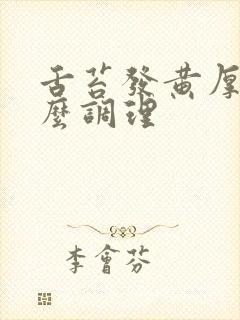 舌苔發黃厚
麼調理
李會芬